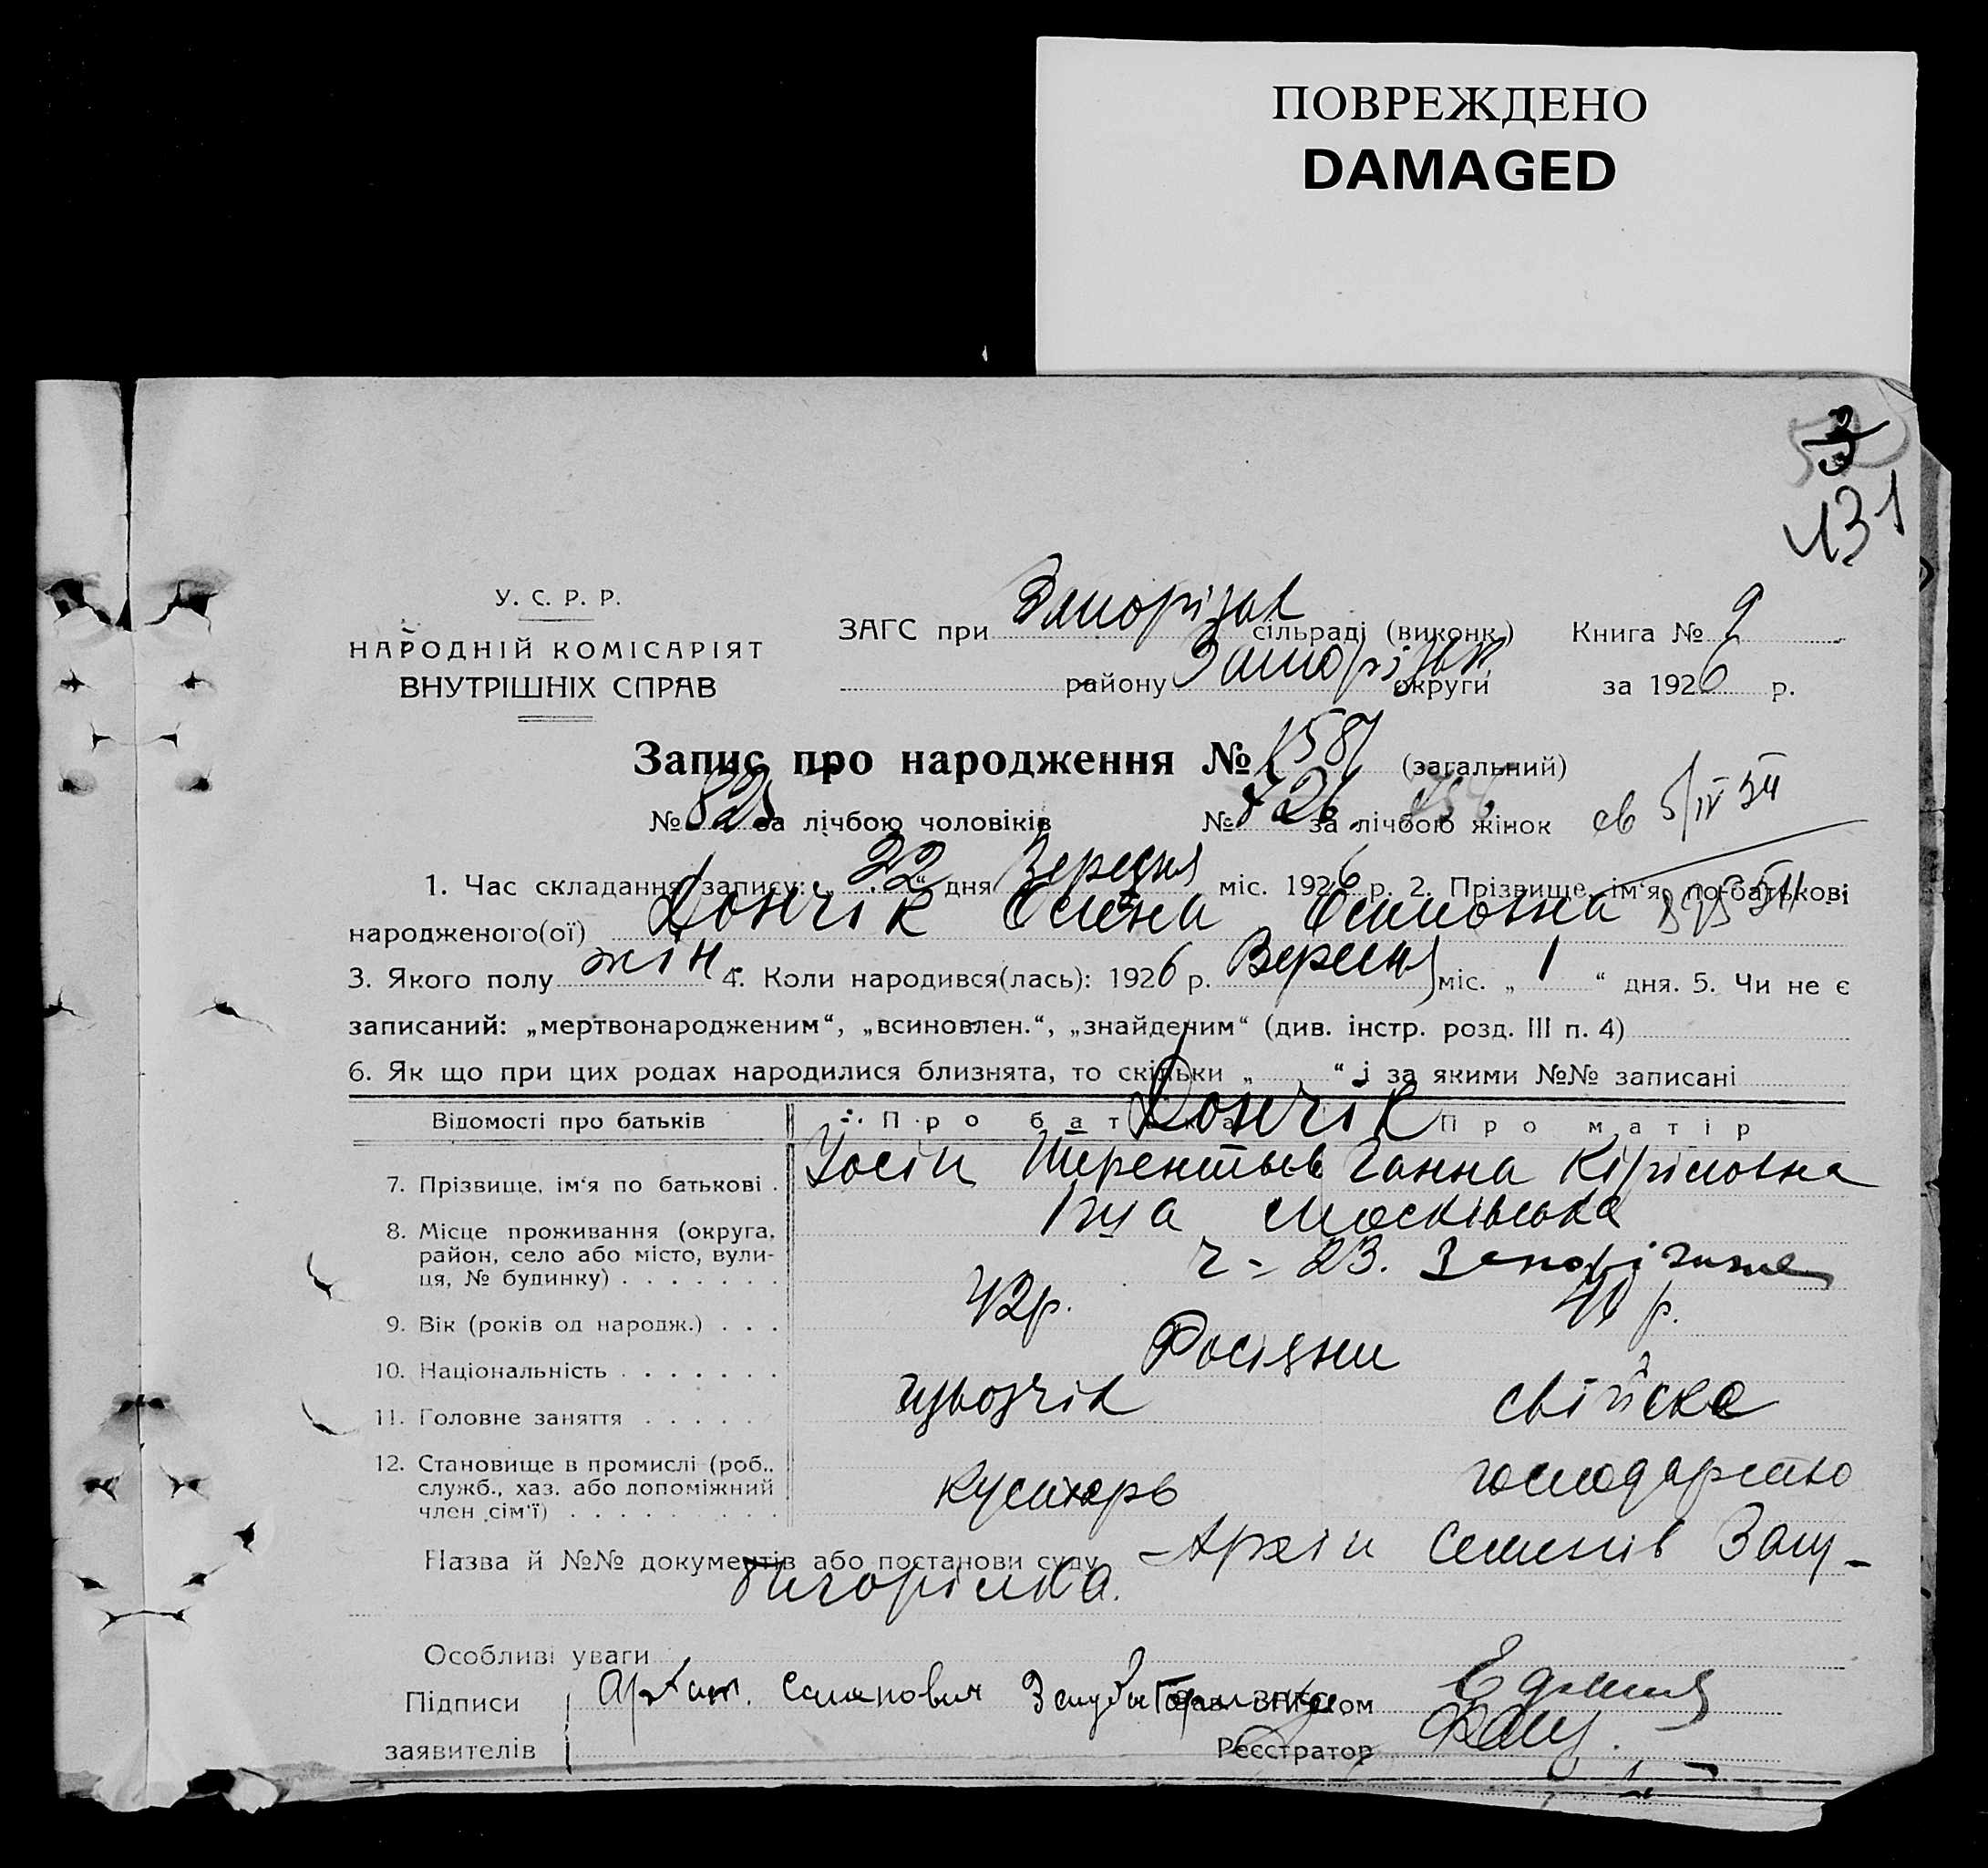 ПОВРЕЖДЕНО
DAMAGED
3
131
У. С. Р. Р.
НАРОДНІЙ КОМІСАРІЯТ
ВНУТРІШНІХ СПРАВ
ЗАГС при Запорізьк сільраді (виконк.) Книга № 9
району Запорізьк округи за 1926 р.
Запис про народження № 1587 (загальний)
№ 825 за лічбою чоловіків № 726 за лічбою жінок св 5/IV 54
1. Час складання запису: „22“ дня Вересня міс. 1926 р. 2. Прізвище, ім‘я, по-батькові
народженого(ої) Дончік Олена
3. Якого полу жін 4. Коли народився(лась): 1926 р. Вересня міс. „1“ дня. 5. Чи не є
записаний: „мертвонародженим“, „всиновлен.“, „знайденим“ (див. інстр. розд. III п. 4)
6. Як що при цих родах народилися близнята, то скільки „ “ і за якими №№ записані
Відомості про батьків Про батька Про матір
Дончік
7. Прізвище, ім‘я по батькові . Йосіп Терентьев Ганна Кіріловна
8. Місце проживання (округа, район, село або місто, вулиця, № будинку) . . . . . . . Московська
ч = 23. Запоріжже
9. Вік (років од народж.) . . . 42р. 40 р.
10. Національність . . . . . . . Росіяни
11. Головне заняття . . . . . ізвозчік свійске
12. Становище в промислі (роб., служб., хаз. або допоміжний член сім‘ї) . . . . . . . . . кустарь господарство
Назва й №№ документів або постанови суду Архіп Семенів Зату-
Особливі уваги
Підписи Семенович Завід. ЗАГС‘ом
заявителів Реєстратор